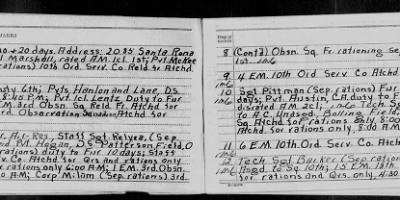 no + 20 days. Address: 2035 Santa Rona
l Marshall, rated AM. 1cl. 1st; Pvt. McKee
rations) 10th Ord. Serv. Co Reld fr Atchd
6th; Pvts Hanlon and Lane, DS
8:30 P.M.; Pvt. 1cl. Lentz Duty to Fur
EM. 3rd Obsn. Sq Reld fr Atchd for
3rd Observation Squadron Atchd for
Staff Sgt Relyea, (Sep.
Pvt. Hogan, DS Patterson Field, O
rations) duty to Fur 10 days; Staff
v. Co Atchd for Qrs and rations only
rations only 6:00 AM; 1 E.M. 3rd Obsn.
AM; Corp Milam (Sep rations) 3rd
8 (Cont'd) Obsn. Sq. Fr. rationing Sep
1st.
9 4 E.M. 10th Ord Serv. Co Atchd
10 Sgt Pittman (Sep rations) Fur
days; Pvt Austin, C.A. duty to
disrated AM. 2cl; Tech Sg
to H.C. Unasgd. Bolling Field
Sq Atchd for rations only, 8:00 AM
Atchd for rations only, 8:00 AM
11 6 E.M. 10th Ord. Serv. Co Atch
12 Tech Sgd Barker (Sep rations
Asgd to Sq. 10th; 15 E.M. 13th
for rations and Qrs. only, 4:30